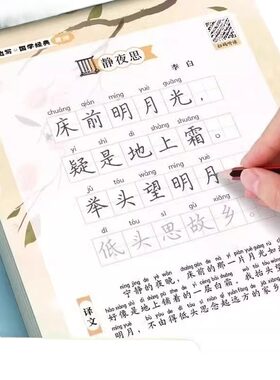 边写·国学经典
扫码听读
静夜思
李白
chuáng qián míng yuè guāng
床前明月光，
yí shì dì shàng shuāng
疑是地上霜。
jǔ tóu wàng míng yuè
举头望明月
低头思故乡。
译文
宁静的夜晚，床前的那一片月光
好像是地上铺着的一层白霜。我抬头
明月，不由得低头思念起远方的家乡